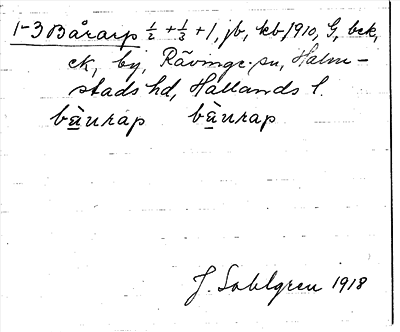 1-3 Bårarp ½ + ½ + 1, jb, kb 1910, G, bck,
ck, by, Rävinge sn, Halm-
stads hd, Hallands l.
J. Sahlgren 1918